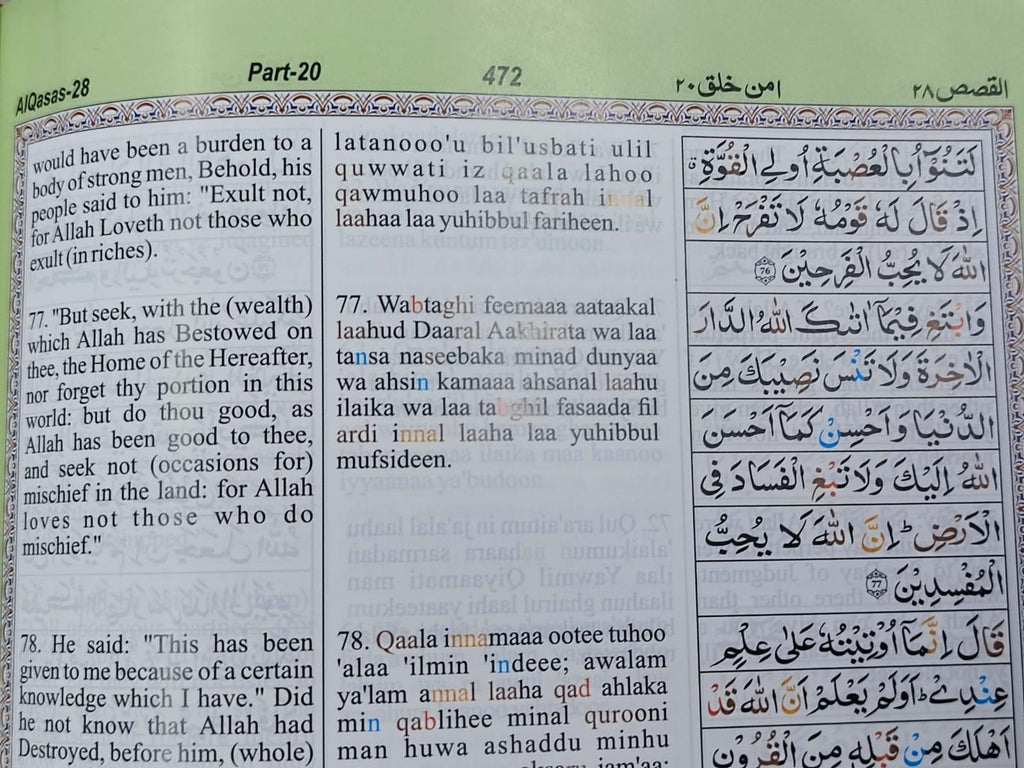 AlQasas-28
Part-20
472
امن خلق ۲۰
القصص ۲۸
would have been a burden to a
body of strong men, Behold, his
people said to him: "Exult not,
for Allah Loveth not those who
exult (in riches).
77. "But seek, with the (wealth)
which Allah has Bestowed on
thee, the Home of the Hereafter,
nor forget thy portion in this
world: but do thou good, as
Allah has been good to thee,
and seek not (occasions for)
mischief in the land: for Allah
loves not those who do
mischief."
78. He said: "This has been
given to me because of a certain
knowledge which I have." Did
he not know that Allah had
Destroyed, before him, (whole)
latanooo'u bil'usbati ulil
quwwati iz qaala lahoo
qawmuhoo laa tafrah innal
laahaa laa yuhibbul fariheen.
77. Wabtaghi feemaaa aataakal
laahud Daaral Aakhirata wa laa
tansa naseebaka minad dunyaa
wa ahsin kamaaa ahsanal laahu
ilaika wa laa tabghil fasaada fil
ardi innal laaha laa yuhibbul
mufsideen.
78. Qaala innamaaa ootee tuhoo
'alaa 'ilmin 'indeee; awalam
ya'lam annal laaha qad ahlaka
min qablihee minal qurooni
man huwa ashaddu minhu
لَتَنُوْٓاُ بِالْعُصْبَةِ اُولِي الْقُوَّةِ ۗ
اِذْ قَالَ لَهٗ قَوْمُهٗ لَا تَفْرَحْ اِنَّ
اللّٰهَ لَا يُحِبُّ الْفَرِحِيْنَ 76
وَابْتَغِ فِيْمَآ اٰتٰىكَ اللّٰهُ الدَّارَ
الْاٰخِرَةَ وَلَا تَنْسَ نَصِيْبَكَ مِنَ
الدُّنْيَا وَاَحْسِنْ كَمَآ اَحْسَنَ
اللّٰهُ اِلَيْكَ وَلَا تَبْغِ الْفَسَادَ فِي
الْاَرْضِ ؕ اِنَّ اللّٰهَ لَا يُحِبُّ
الْمُفْسِدِيْنَ 77
قَالَ اِنَّمَآ اُوْتِيْتُهٗ عَلٰى عِلْمٍ
عِنْدِيْ ؕ اَوَلَمْ يَعْلَمْ اَنَّ اللّٰهَ قَدْ
اَهْلَكَ مِنْ قَبْلِهٖ مِنَ الْقُرُوْنِ